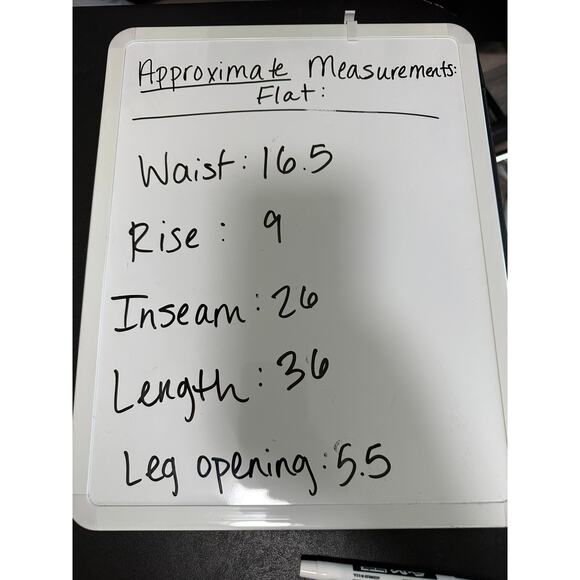 Approximate Measurements:
Flat:
Waist: 16.5
Rise: 9
Inseam: 26
Length: 36
Leg opening: 5.5